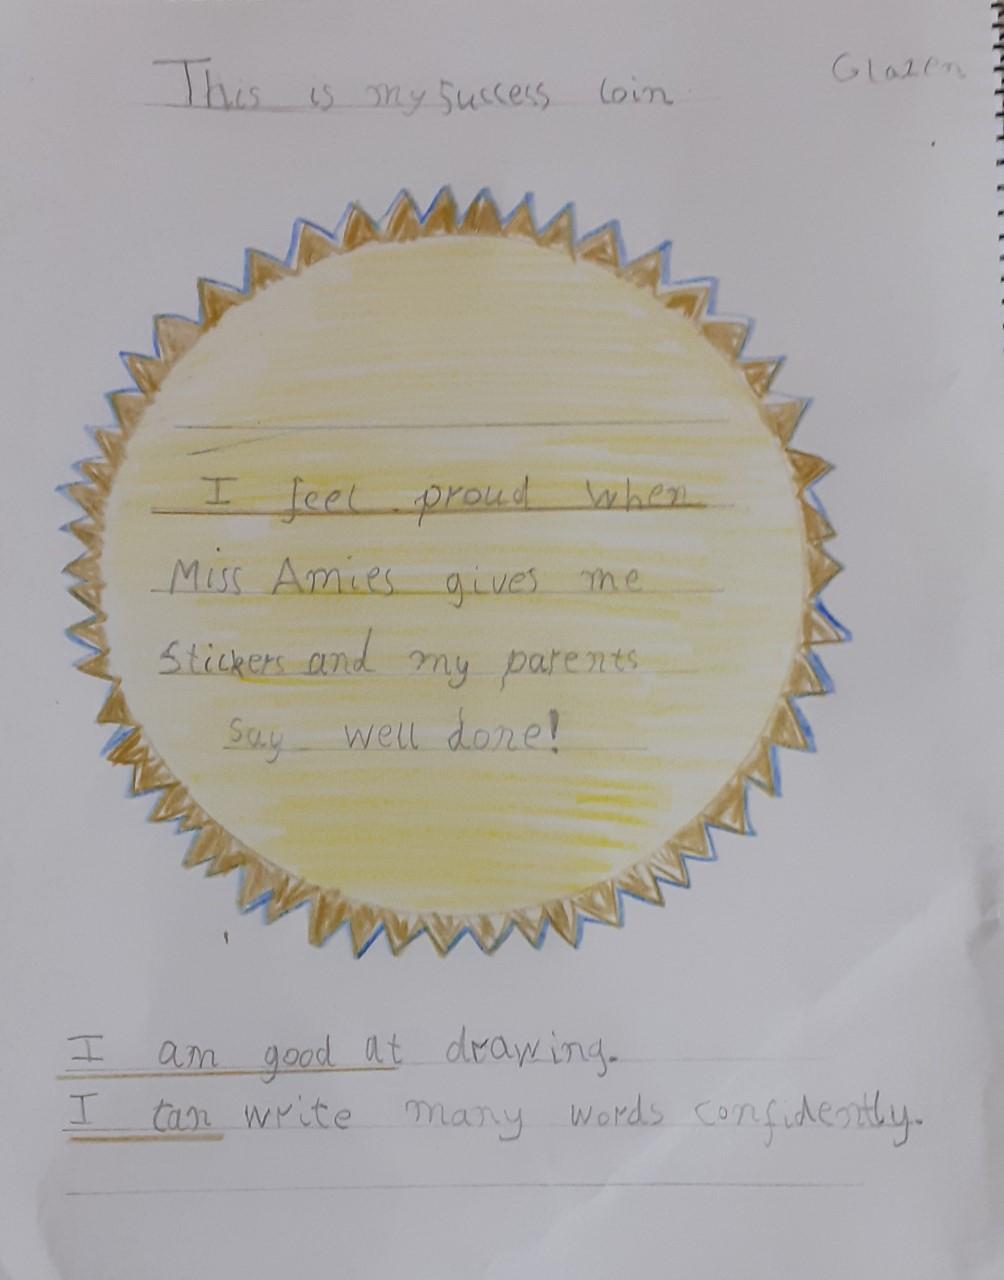 This is my success coin
Glazen
I feel proud when
Miss Amies gives me
Stickers and my parents
say well done!
I am good at drawing.
I can write many words confidently.